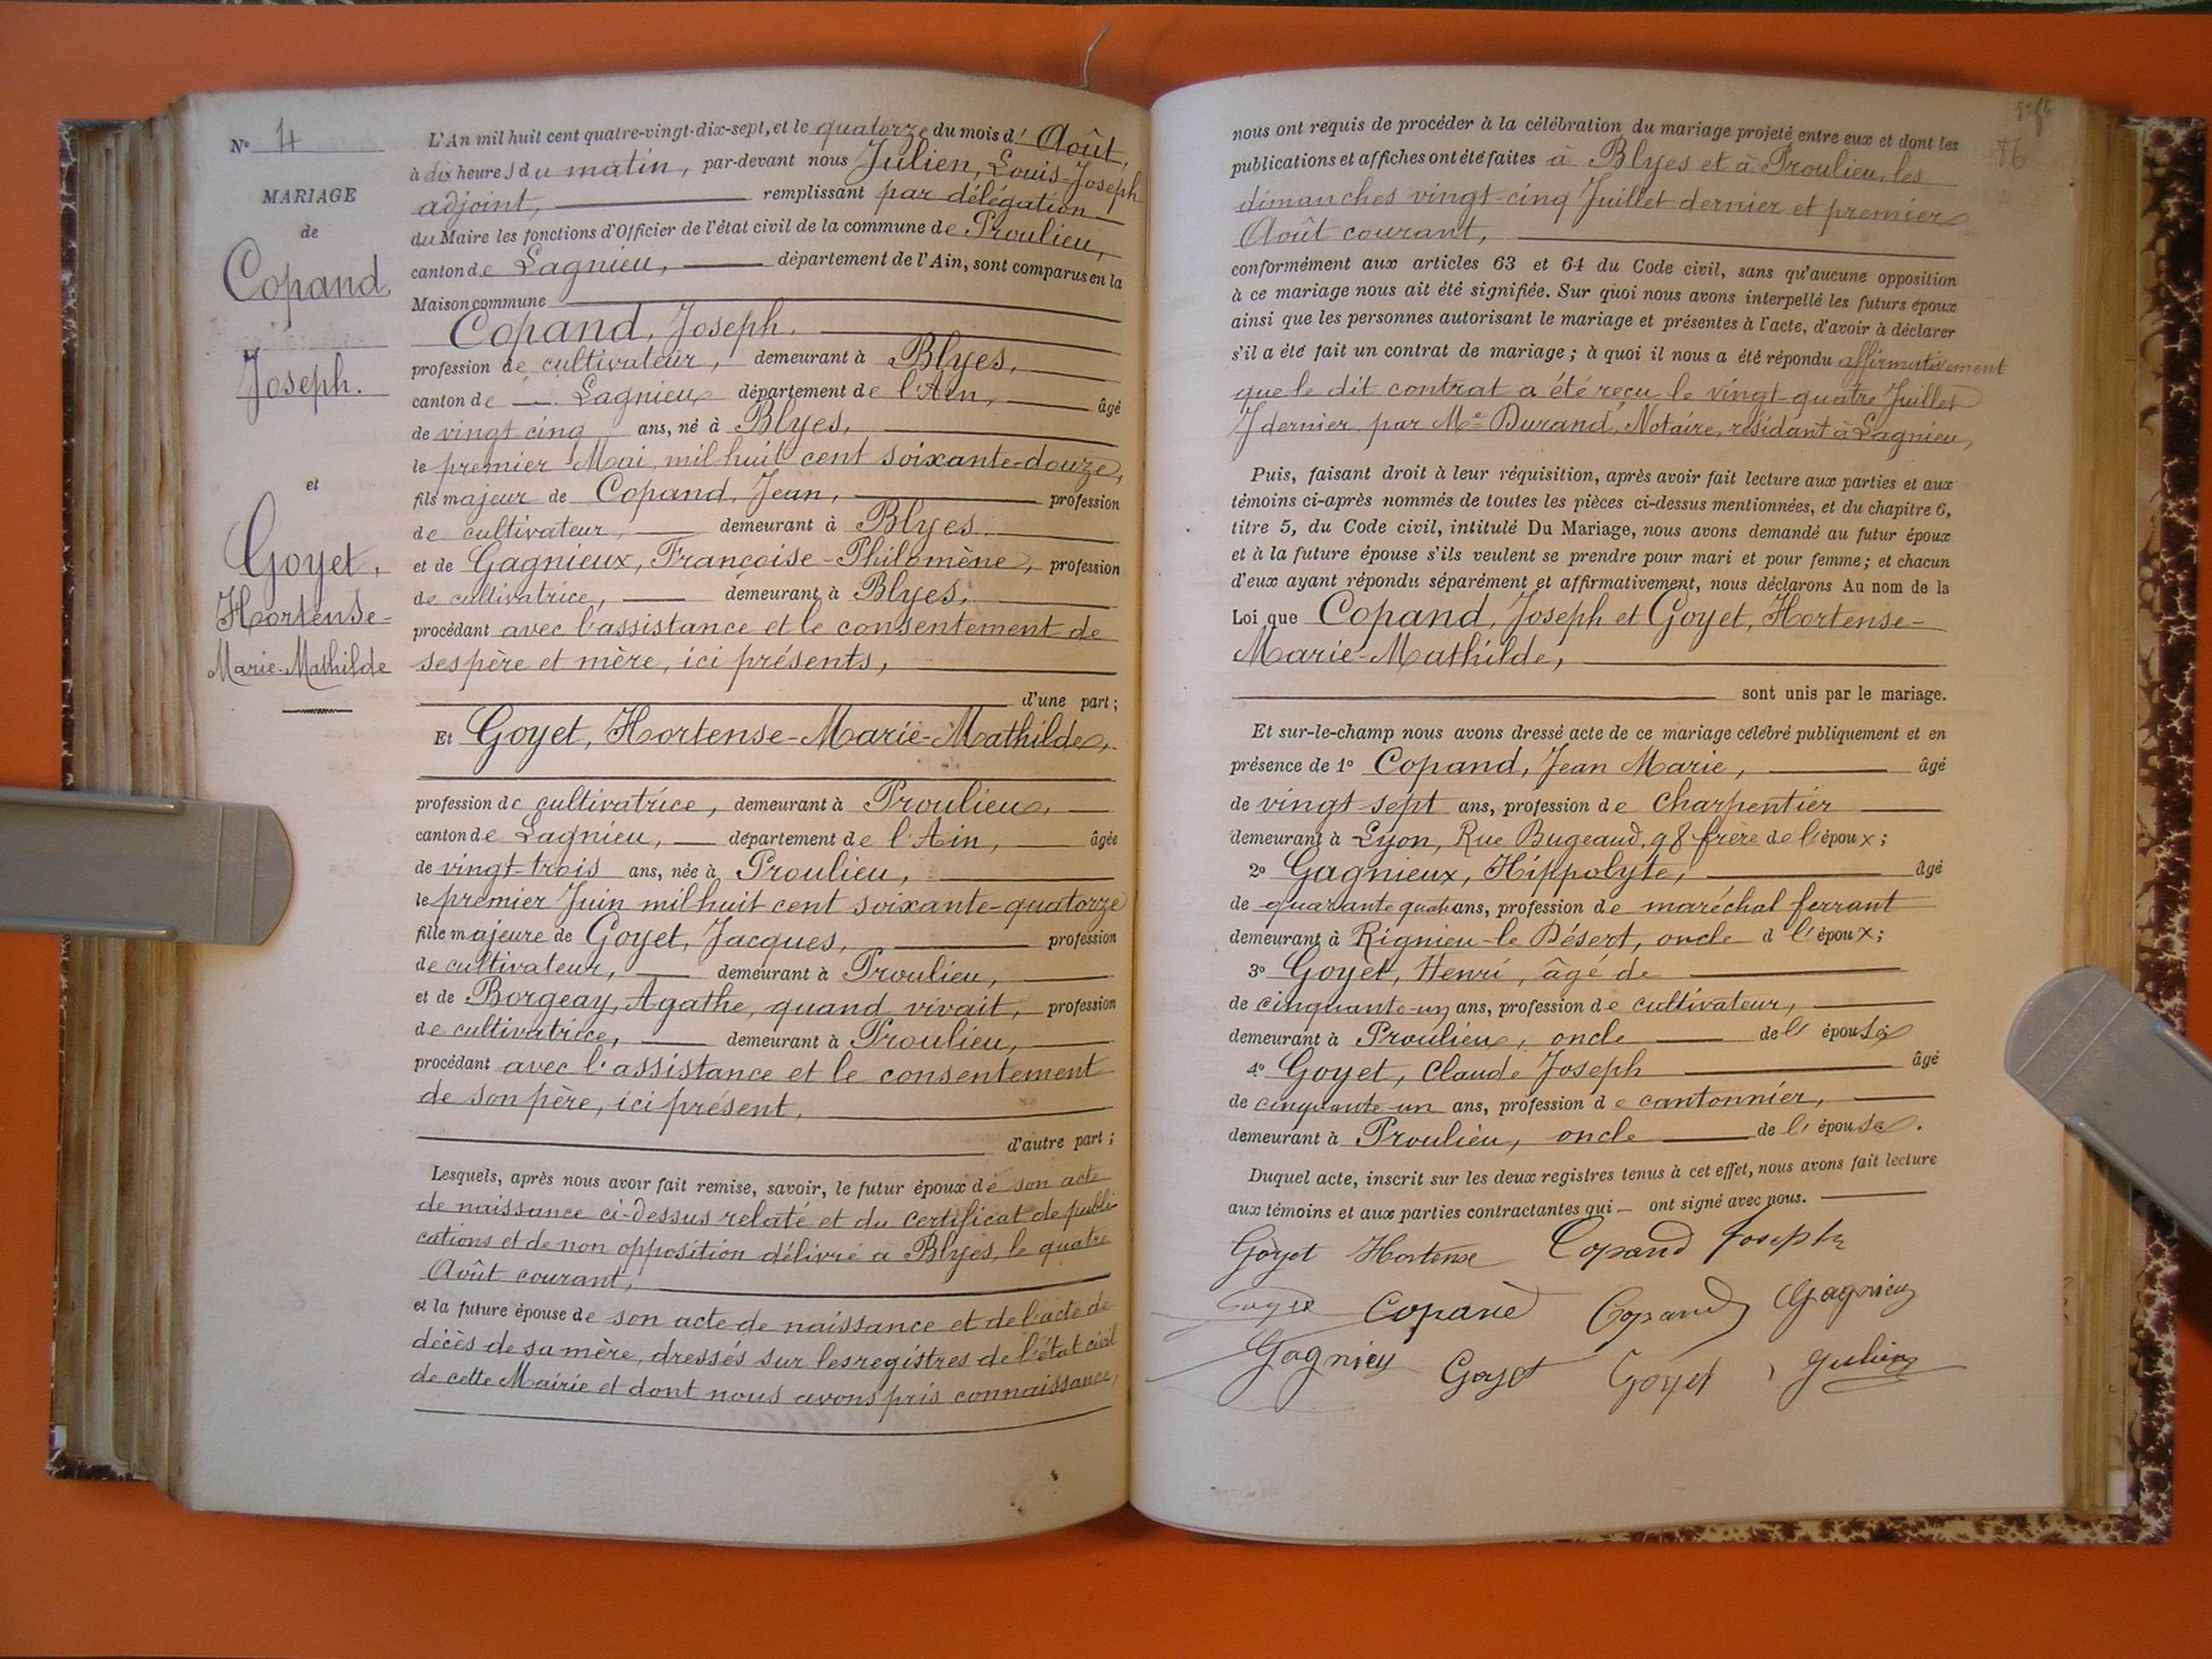 Nº 4
MARIAGE
de
Copand
Joseph.
et
Goyet,
Hortense-
Marie-Mathilde
L'An mil huit cent quatre-vingt-dix-sept, et le quatorze du mois d' Août,
à dix heures du matin, par-devant nous Julien, Louis-Joseph
adjoint, remplissant par délégation
du Maire les fonctions d'Officier de l'état civil de la commune de Proulieu,
canton de Lagnieu, département de l'Ain, sont comparus en la
Maison commune
Copand, Joseph,
profession de cultivateur, demeurant à Blyes,
canton de Lagnieu département de l'Ain, âgé
de vingt cinq ans, né à Blyes,
le premier Mai mil huit cent soixante-douze,
fils majeur de Copand, Jean, profession
de cultivateur, demeurant à Blyes
et de Gagnieux, Françoise-Philomène, profession
de cultivatrice, demeurant à Blyes,
procédant avec l'assistance et le consentement de
ses père et mère, ici présents,
d'une part;
Et Goyet, Hortense-Marie-Mathilde,
profession de cultivatrice, demeurant à Proulieu,
canton de Lagnieu, département de l'Ain, âgée
de vingt-trois ans, née à Proulieu,
le premier Juin mil huit cent soixante-quatorze
fille majeure de Goyet, Jacques, profession
de cultivateur, demeurant à Proulieu,
et de Borgeay, Agathe, quand vivait, profession
de cultivatrice, demeurant à Proulieu,
procédant avec l'assistance et le consentement
de son père, ici présent,
d'autre part;
Lesquels, après nous avoir fait remise, savoir, le futur époux de son acte
de naissance ci-dessus relaté et du certificat de publi-
cations et de non opposition délivré à Blyes, le quatre
Août courant,
et la future épouse de son acte de naissance et de l'acte de
décès de sa mère, dressés sur les registres de l'état civil
de cette Mairie et dont nous avons pris connaissance,
76
nous ont requis de procéder à la célébration du mariage projeté entre eux et dont les
publications et affiches ont été faites à Blyes et à Proulieu, les
dimanches vingt-cinq Juillet dernier et premier
Août courant,
conformément aux articles 63 et 64 du Code civil, sans qu'aucune opposition
à ce mariage nous ait été signifiée. Sur quoi nous avons interpellé les futurs époux
ainsi que les personnes autorisant le mariage et présentes à l'acte, d'avoir à déclarer
s'il a été fait un contrat de mariage; à quoi il nous a été répondu affirmativement
que le dit contrat a été reçu le vingt-quatre Juillet
dernier par Me Durand, Notaire, résidant à Lagnieu,
Puis, faisant droit à leur réquisition, après avoir fait lecture aux parties et aux
témoins ci-après nommés de toutes les pièces ci-dessus mentionnées, et du chapitre 6,
titre 5, du Code civil, intitulé Du Mariage, nous avons demandé au futur époux
et à la future épouse s'ils veulent se prendre pour mari et pour femme; et chacun
d'eux ayant répondu séparément et affirmativement, nous déclarons Au nom de la
Loi que Copand, Joseph et Goyet, Hortense-
Marie-Mathilde,
sont unis par le mariage.
Et sur-le-champ nous avons dressé acte de ce mariage célébré publiquement et en
présence de 1º Copand, Jean Marie, âgé
de vingt sept ans, profession de charpentier
demeurant à Lyon, Rue Bugeaud, 98 frère de l'époux;
2º Gagnieux, Hippolyte, âgé
de quarante quatre ans, profession de maréchal ferrant
demeurant à Rignieu-le Désert, oncle d l'époux;
3º Goyet, Henri, âgé de
de cinquante-un ans, profession de cultivateur,
demeurant à Proulieu, oncle de l'épouse
4º Goyet, Claude Joseph âgé
de cinquante-un ans, profession de cantonnier,
demeurant à Proulieu, oncle de l'épouse.
Duquel acte, inscrit sur les deux registres tenus à cet effet, nous avons fait lecture
aux témoins et aux parties contractantes qui ont signé avec nous.
Goyet Hortense Copand Joseph
Goyet Copand Copand Gagnieux
Gagnieu Goyet Goyet Julien